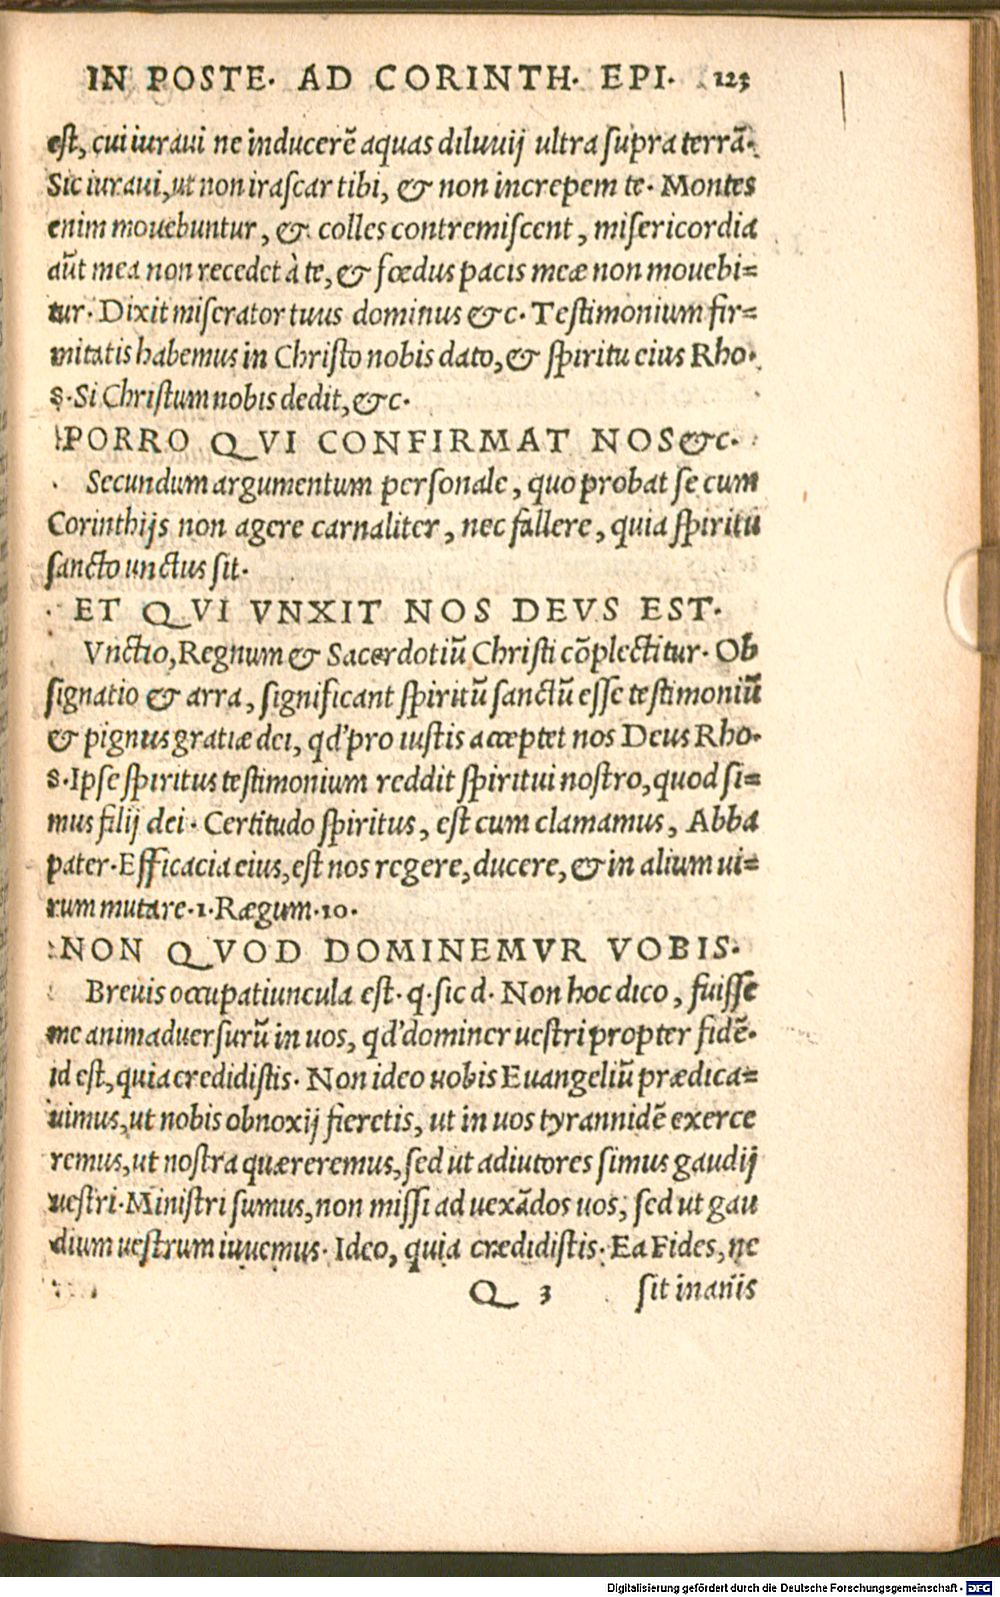 IN POSTE. AD CORINTH. EPI. 123
est, cui iuraui ne inducerē aquas diluuij ultra supra terrā.
Sic iuraui, ut non irascar tibi, & non increpem te. Montes
enim mouebuntur, & colles contremiscent, misericordia
aūt mea non recedet à te, & fœdus pacis meæ non mouebi=
tur. Dixit miserator tuus dominus &c. Testimonium fir=
mitatis habemus in Christo nobis dato, & spiritu eius Rho.
8. Si Christum nobis dedit, &c.
PORRO QVI CONFIRMAT NOS &c.
Secundum argumentum personale, quo probat se cum
Corinthijs non agere carnaliter, nec fallere, quia spiritu
sancto unctus sit.
ET QVI VNXIT NOS DEVS EST.
Vnctio, Regnum & Sacerdotiū Christi cōplectitur. Ob
signatio & arra, significant spiritū sanctū esse testimoniū
& pignus gratiæ dei, qd' pro iustis acceptet nos Deus Rho.
8. Ipse spiritus testimonium reddit spiritui nostro, quod si=
mus filij dei. Certitudo spiritus, est cum clamamus, Abba
pater. Efficacia eius, est nos regere, ducere, & in alium ui=
rum mutare. 1. Rægum. 10.
NON QVOD DOMINEMVR VOBIS.
Breuis occupatiuncula est. q. sic d. Non hoc dico, fuisse
me animaduersurū in uos, qd' dominer uestri propter fidē.
id est, quia credidistis. Non ideo uobis Euangeliū prædica=
uimus, ut nobis obnoxij fieretis, ut in uos tyrannidē exerce
remus, ut nostra quæreremus, sed ut adiutores simus gaudij
uestri. Ministri sumus, non missi ad uexādos uos, sed ut gau
dium uestrum iuuemus. Ideo, quia credidistis. Ea Fides, ne
Q 3 sit inanis
Digitalisierung gefördert durch die Deutsche Forschungsgemeinschaft - DFG